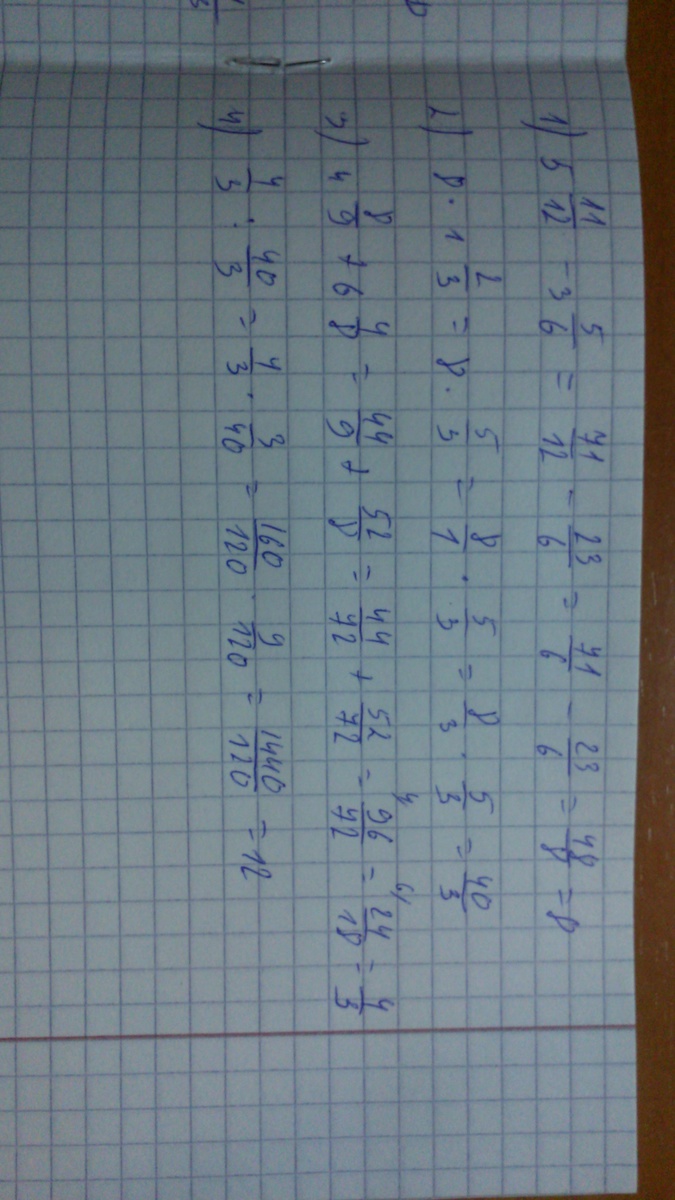 1) 5 11/12 - 3 5/6 = 71/12 - 23/6 = 71/6 - 23/6 = 48/6 = 8
2) 8 · 1 2/3 = 8 · 5/3 = 8/1 · 5/3 = 8/3 · 5/3 = 40/3
3) 4 8/9 + 6 4/8 = 44/9 + 52/8 = 44/72 + 52/72 = 4 96/72 = 6) 24/18 = 4/3
4) 4/3 : 40/3 = 4/3 · 3/40 = 160/120 · 9/120 = 1440/120 = 12